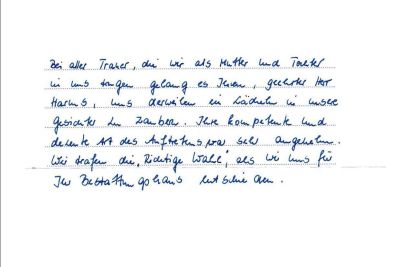 Bei aller Trauer, die wir als Mutter und Tochter
in uns tragen gelang es Ihnen, geehrter Herr
Harms, uns derweilen ein Lächeln in unsere
Gesichter zu zaubern. Ihre kompetente und
dezente Art des Auftretens war sehr angenehm.
Wir trafen die "Richtige Wahl", als wir uns für
Ihr Bestattungshaus entschieden.